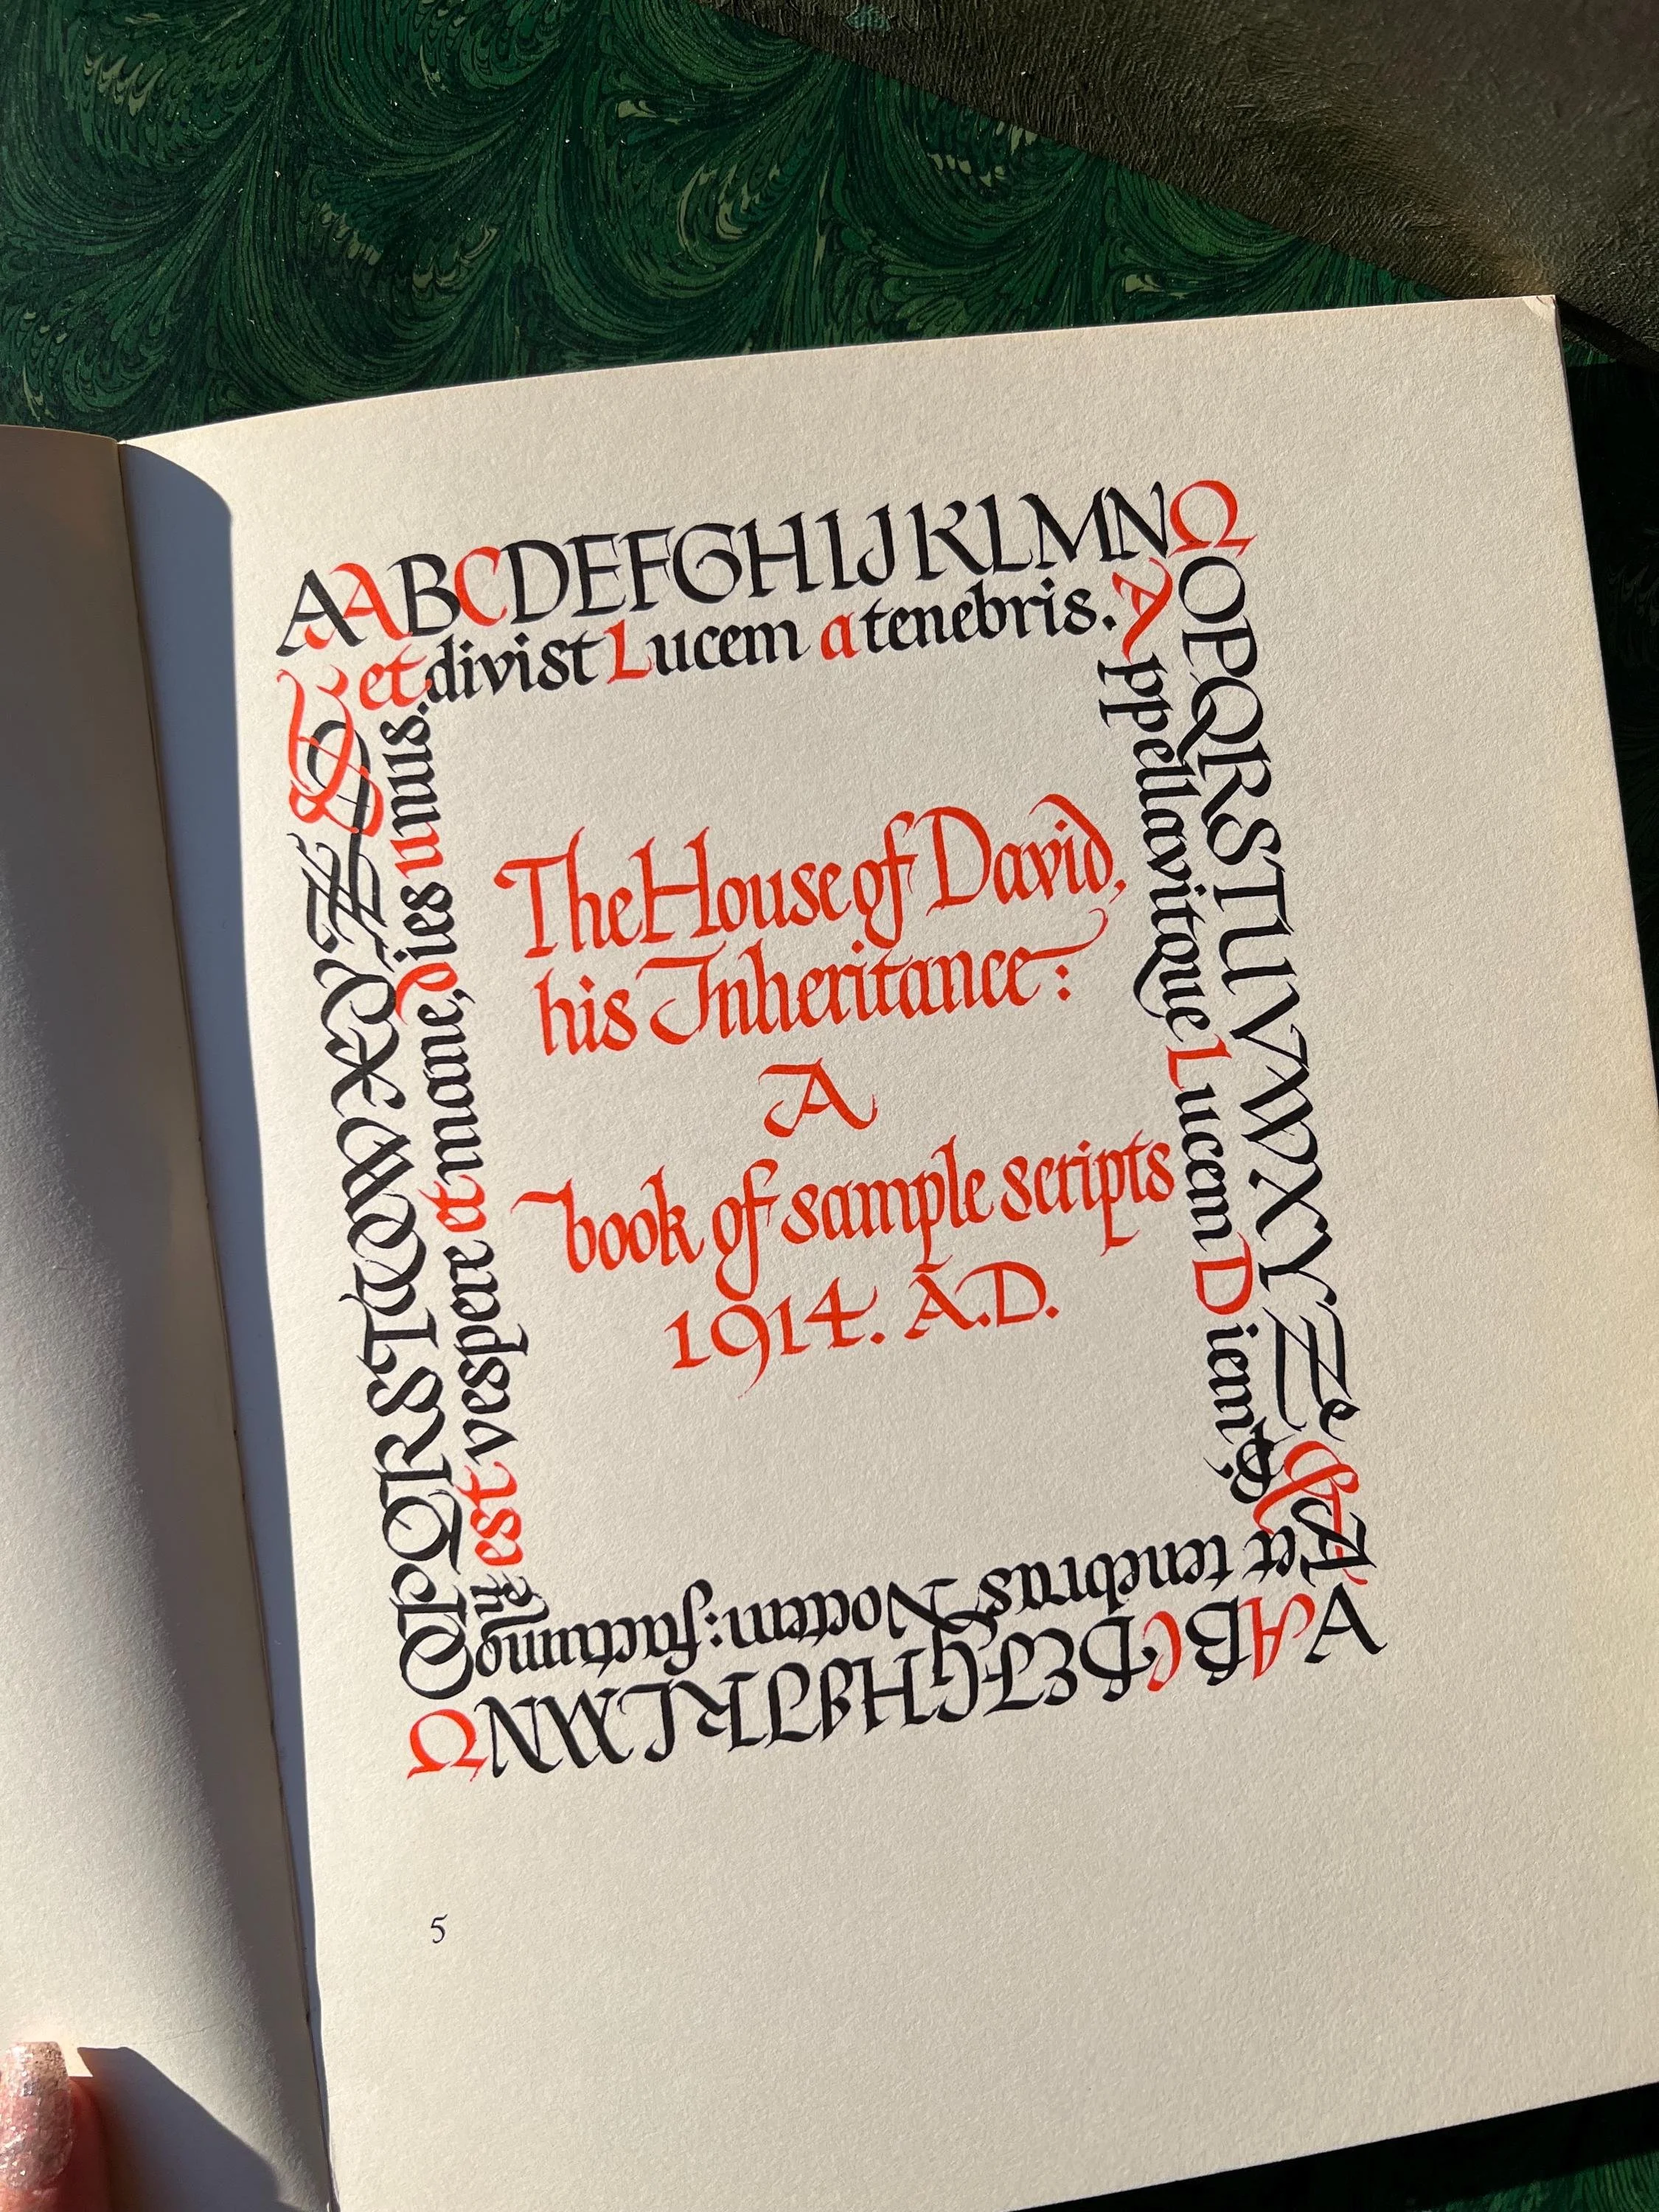 AABCDEFGHIJKLMNΩ
OPQRSTUVWXYZ
AABCDEFGHIJKLMN
OPQRSTUVWXYZ
et divist Lucem a tenebris.
Appellavitque Lucem Diem
et tenebras Noctem: factum
est vespere et mane, dies unus.
The House of David,
his Inheritance:
A
book of sample scripts
1914. A.D.
5